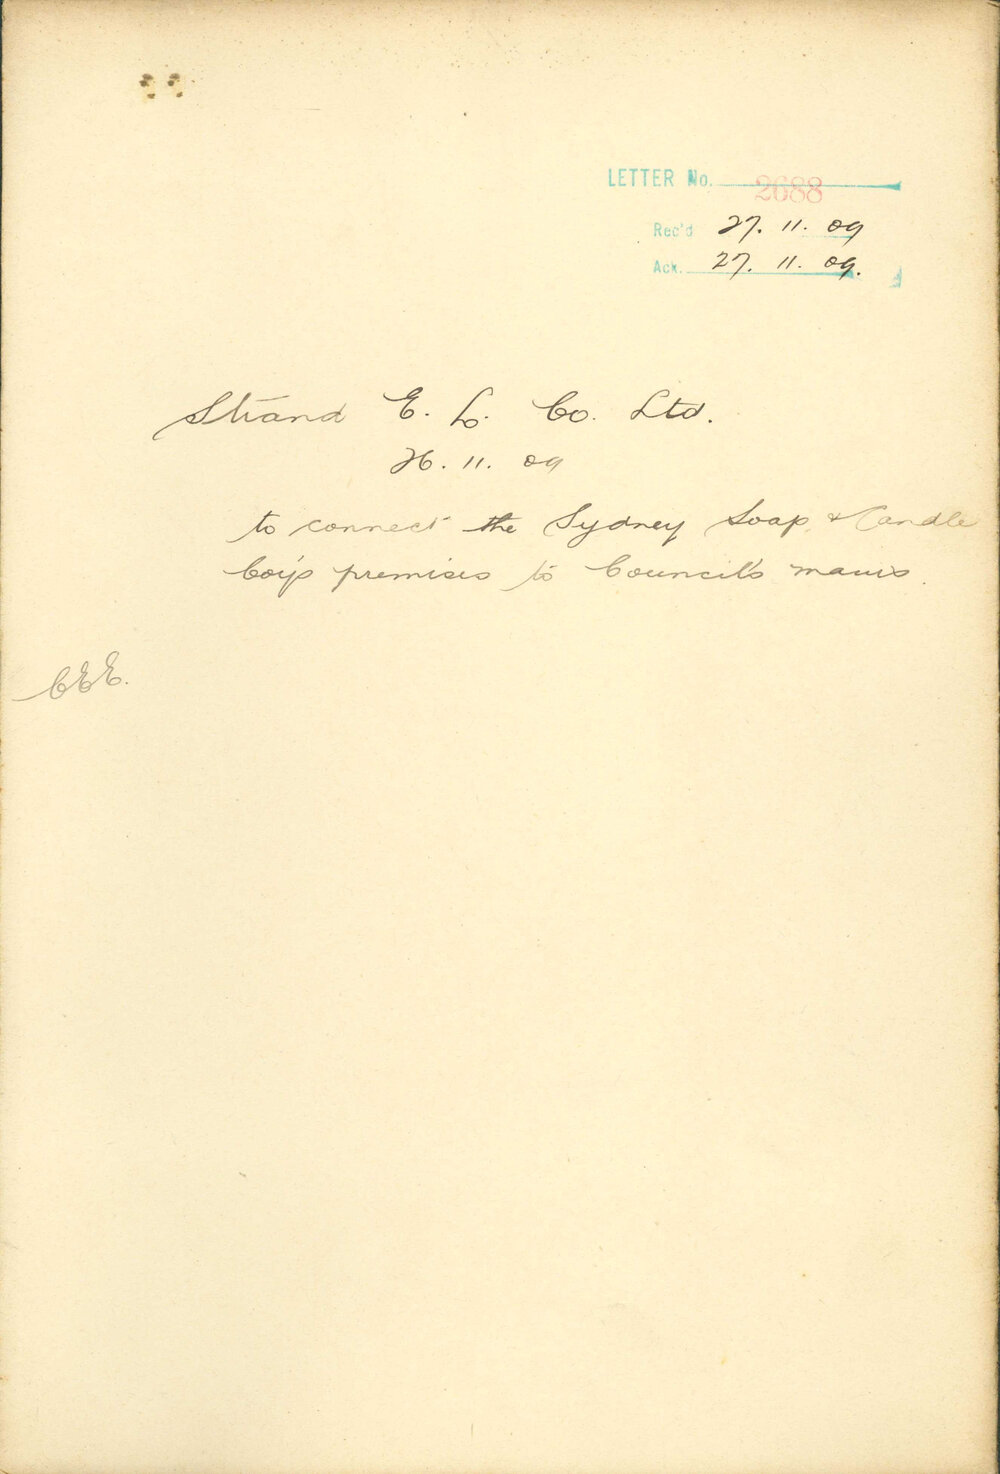 LETTER No. 2688
Rec'd 27. 11. 09
Ack. 27. 11. 09.
Strand E. L. Co. Ltd.
26. 11. 09
to connect the Sydney Soap & Candle
Coy's premises to Council's mains.
CEE.